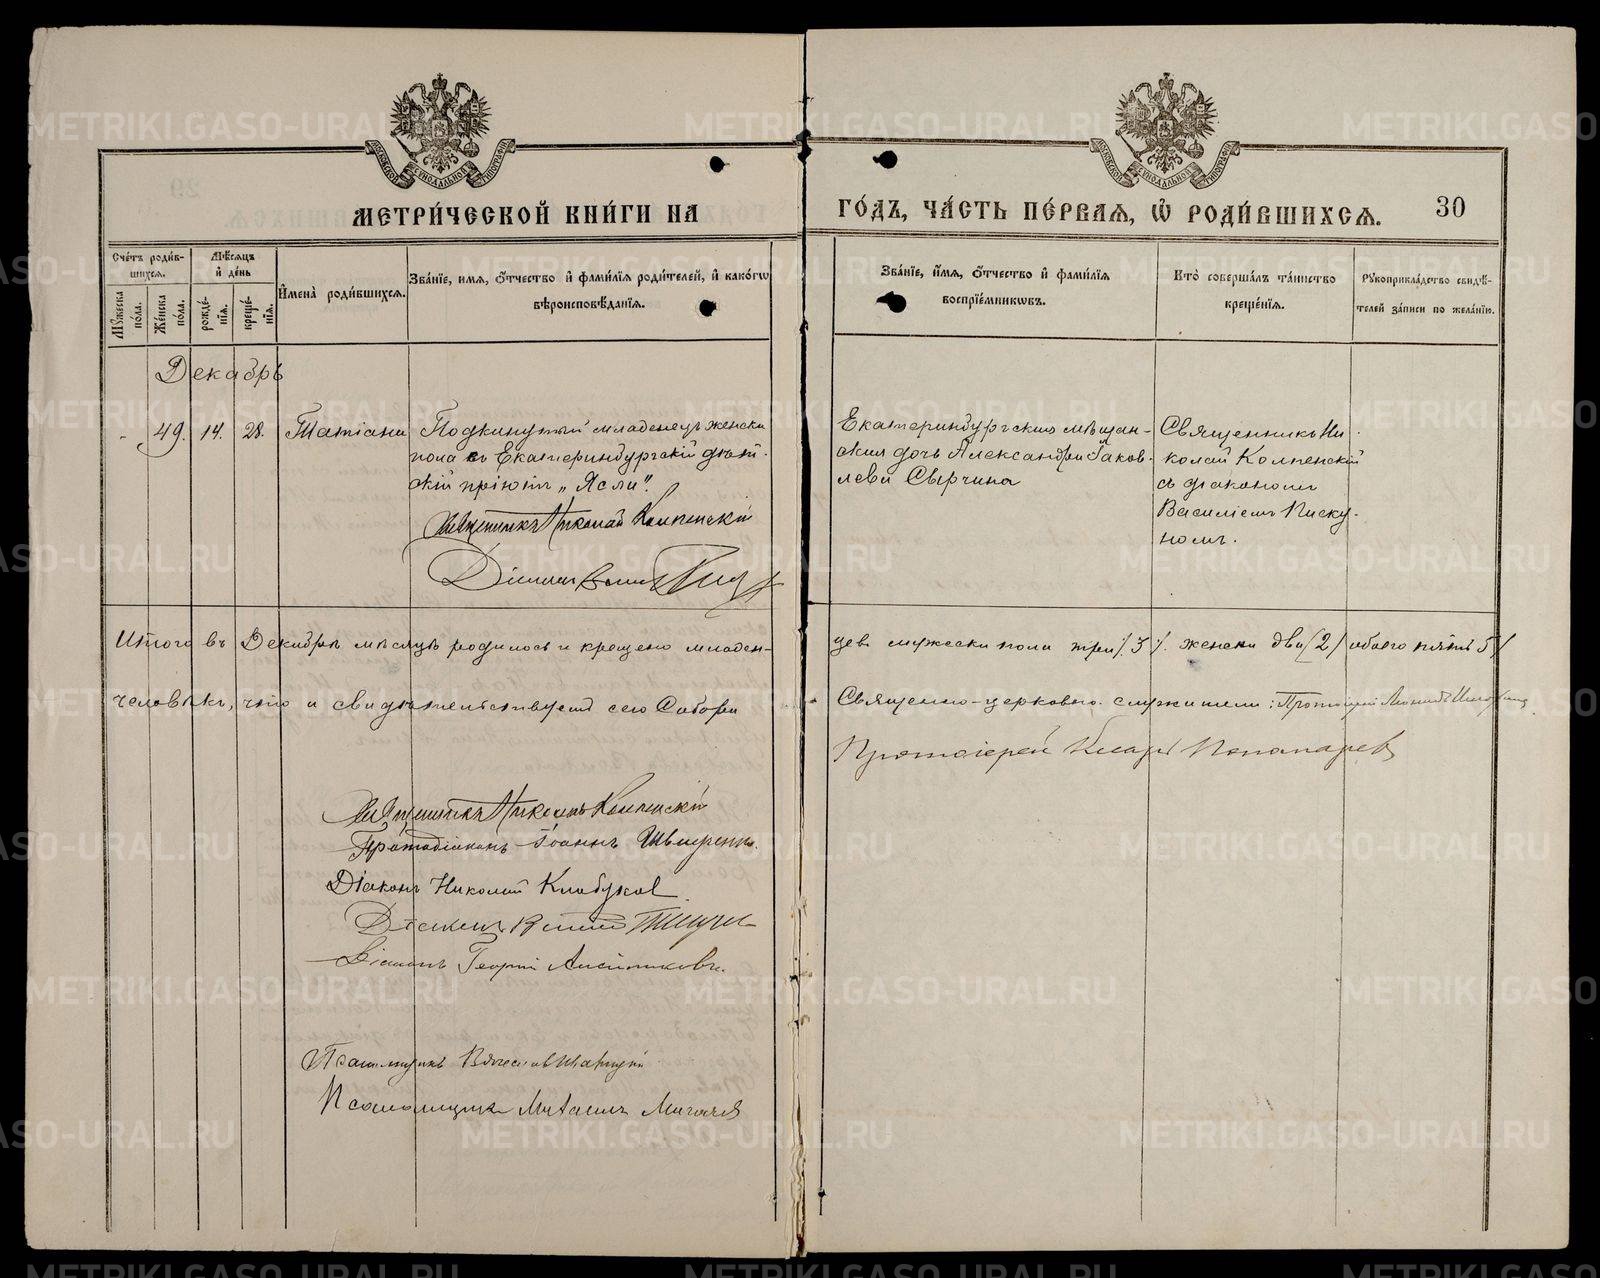 МОСКОВСКОЙ СѴНОДАЛЬНОЙ ТИПОГРАФІИ
МОСКОВСКОЙ СѴНОДАЛЬНОЙ ТИПОГРАФІИ
МЕТРИ́ЧЕСКОЙ КНИ́ГИ НА
ГО́ДЪ, ЧА́СТЬ ПЕ́РВАЯ, Ѽ РОДИ́ВШИХСЯ.
30
Сче́тъ роди́в-
шихся.
Мѣ́сяцъ
и҆ де́нь
Мꙋ́жеска
по́ла.
Же́нска
по́ла.
рожде́-
нїя.
креще́-
нїя.
И҆мена̀ роди́вшихся.
Зва́нїе, и҆́мя, ѻ҆́тчество и҆ фами́лїя роди́телей, и҆ како́гѡ
вѣроисповѣ́данїя.
Зва́нїе, и҆́мя, ѻ҆́тчество и҆ фами́лїя
воспрїе́мникѡвъ.
Кто̀ соверша́лъ та́инство
креще́нїя.
Рꙋкоприкла́дство свидѣ́-
телей за́писи по жела́нїю.
Декабрь
- 49. 14. 28. Татіана
Подкинутый младенецъ женска
пола въ Екатеринбургскій дѣт-
скій пріютъ „Ясли".
Священникъ Николай Колпенскій
Діаконъ
Екатеринбургскаго мѣщан-
ская дочь Александра Іаков-
лева Сырчина
Священникъ Ни-
колай Колпенскій
съ діакономъ
Василіемъ Писку-
номъ.
Итого въ Декабрѣ мѣсяцѣ родилось и крещено младен-
цев мужеска пола три /3/. женска два /2/ обоего пять 5/
человѣкъ, что и свидѣтельствуетъ сего Собора
Священно-церковно-служители: Протоіерей
Протоіерей Пономарев
Священникъ Николай Колпенскій
Протодіаконъ Іоаннъ
Діаконъ Николай Клабуков
Діаконъ
Діаконъ Георгій
Псаломщикъ
Псаломщикъ Михаилъ
METRIKI.GASO-URAL.RU